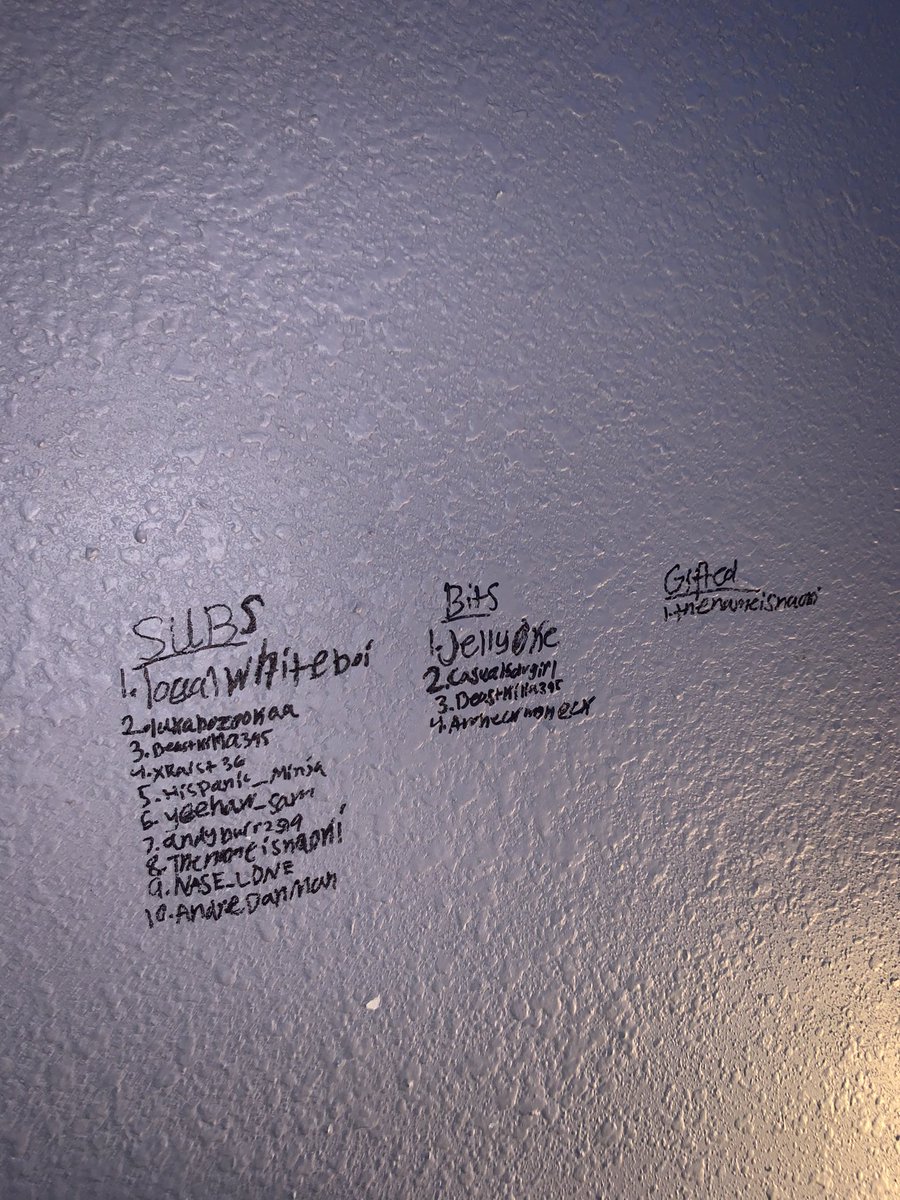 SUBS
1. local whiteboi
2.
3. Beastkilla395
4. xRaist36
5. Hispanic_Minja
6. yeehaw_sam
7.
8. Thenameisnaomi
9. NASE_LONE
10. AndreDanMan
Bits
1. JellyOxe
2. Casualsdvgirl
3. Beastkilla395
4.
Gifted
1. thenameisnaomi